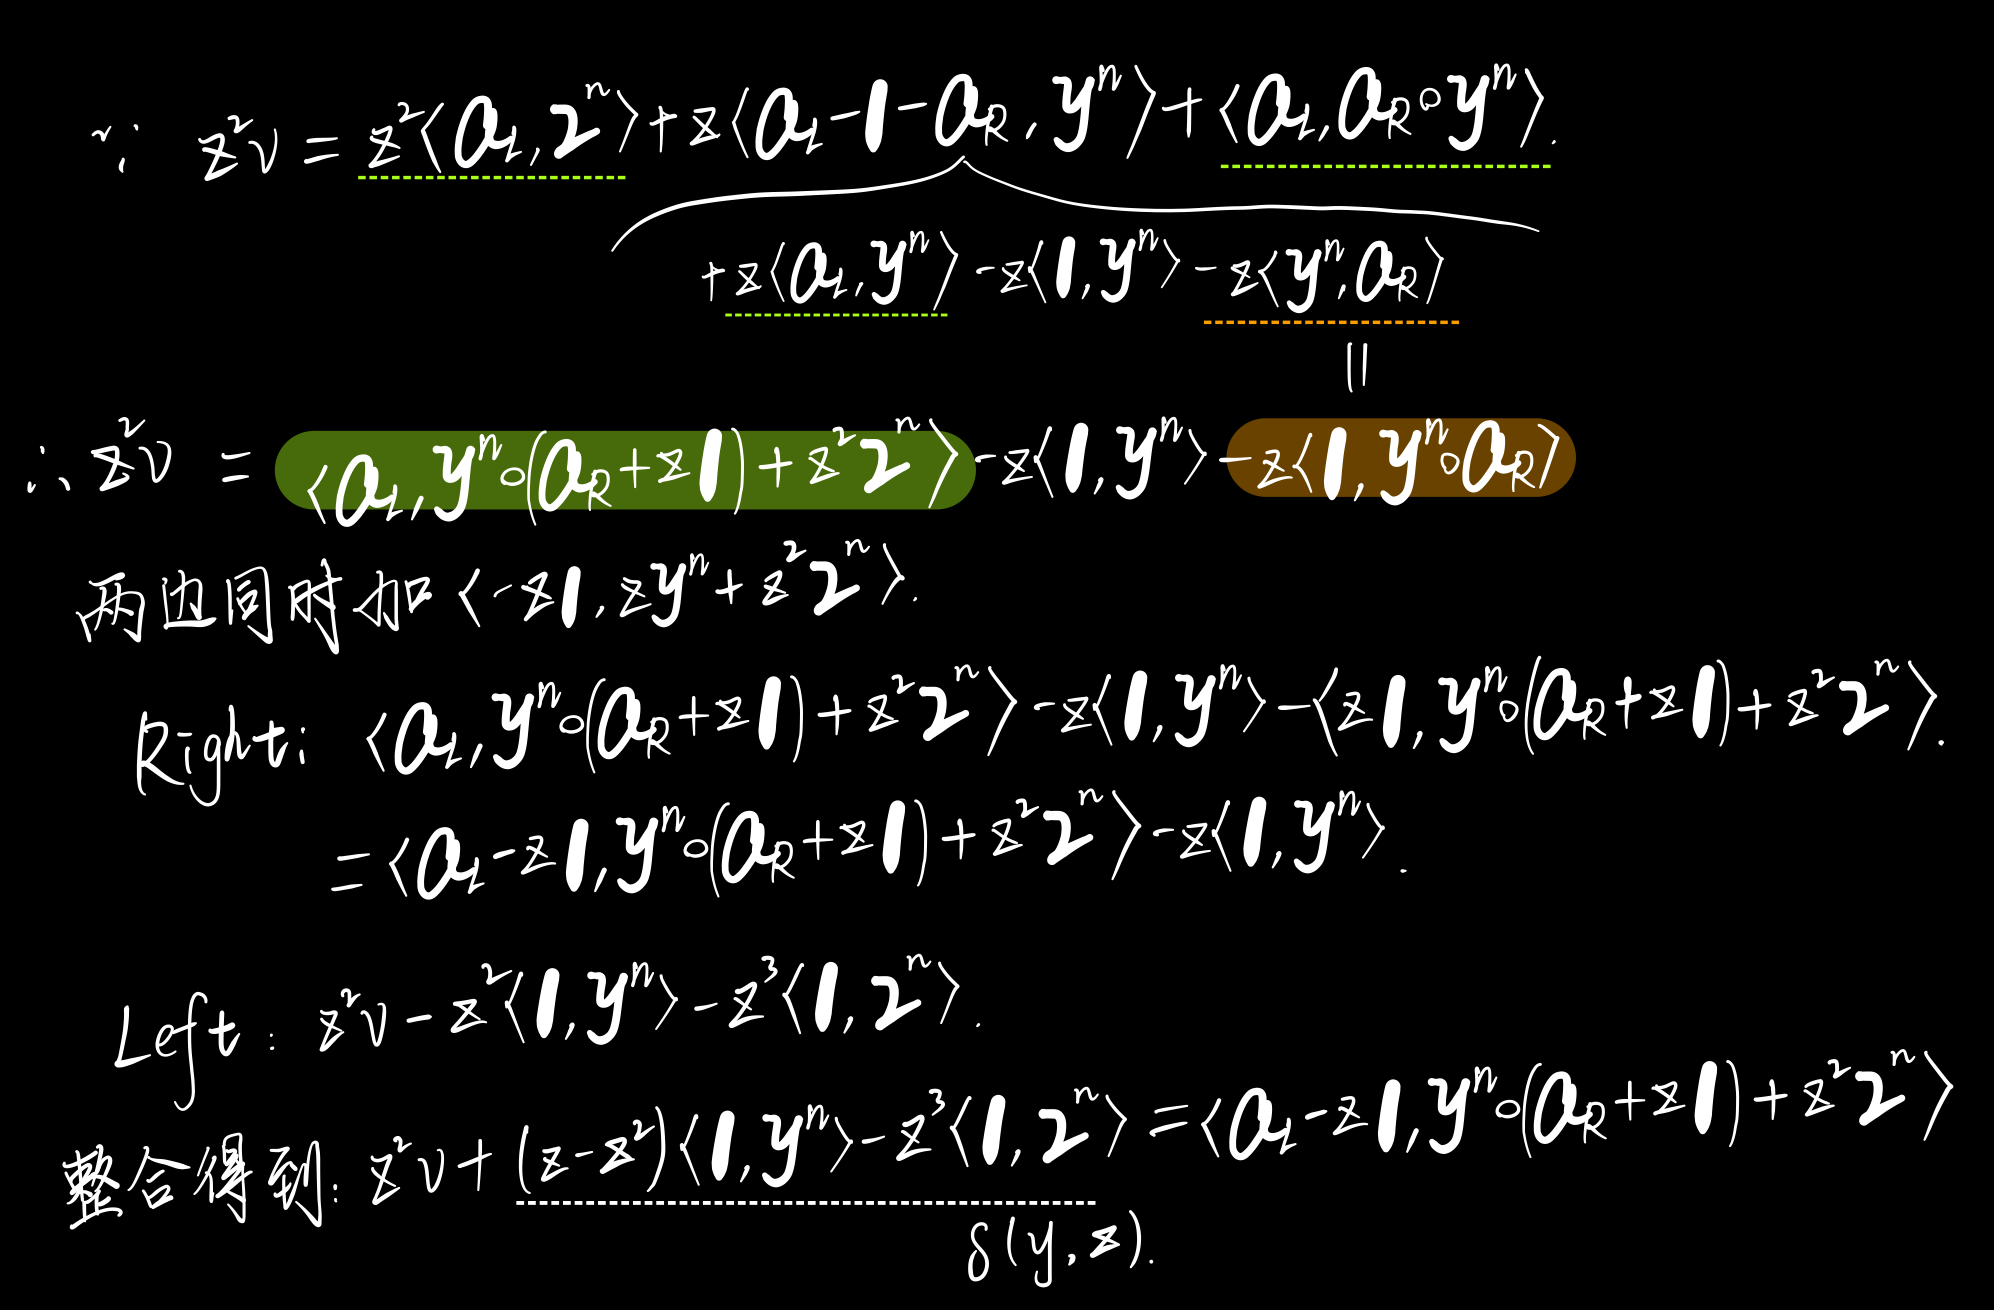 ∵ z²v = z²⟨a_L, 2ⁿ⟩ + z⟨a_L - 1 - a_R, yⁿ⟩ + ⟨a_L, a_R ∘ yⁿ⟩.
+ z⟨a_L, yⁿ⟩ - z⟨1, yⁿ⟩ - z⟨yⁿ, a_R⟩
||
∴ z²v = ⟨a_L, yⁿ ∘ (a_R + z1) + z²2ⁿ⟩ - z⟨1, yⁿ⟩ - z⟨1, yⁿ ∘ a_R⟩
两边同时加 ⟨-z1, zyⁿ + z²2ⁿ⟩.
Right: ⟨a_L, yⁿ ∘ (a_R + z1) + z²2ⁿ⟩ - z⟨1, yⁿ⟩ - ⟨z1, yⁿ ∘ (a_R + z1) + z²2ⁿ⟩.
= ⟨a_L - z1, yⁿ ∘ (a_R + z1) + z²2ⁿ⟩ - z⟨1, yⁿ⟩.
Left: z²v - z²⟨1, yⁿ⟩ - z³⟨1, 2ⁿ⟩.
整合得到: z²v + (z - z²)⟨1, yⁿ⟩ - z³⟨1, 2ⁿ⟩ = ⟨a_L - z1, yⁿ ∘ (a_R + z1) + z²2ⁿ⟩
δ(y, z).